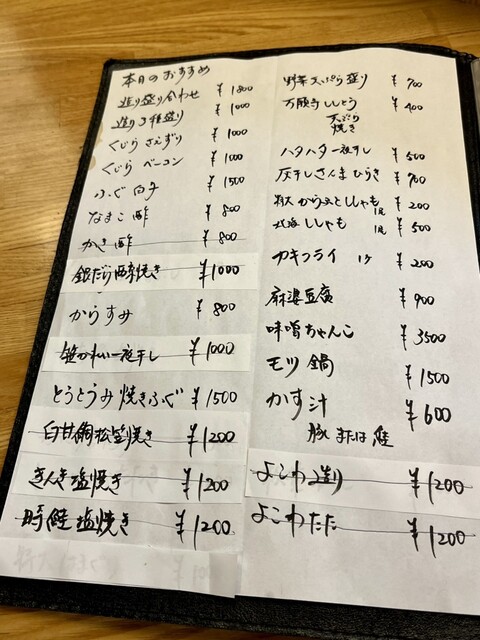 本日のおすすめ
造り盛り合わせ ¥1800
造り3種盛り ¥1000
くじら さえずり ¥1000
くじら ベーコン ¥1000
ふぐ白子 ¥1500
なまこ酢 ¥800
かき酢 ¥800
銀だら西京焼き ¥1000
からすみ ¥800
笹かれい一夜干し ¥1000
とうとうみ焼きふぐ ¥1500
白甘鯛松笠焼き ¥1200
きんき塩焼き ¥1200
時鮭塩焼き ¥1200
野菜天ぷら盛り ¥700
万願寺ししとう ¥400
天ぷら
焼き
ハタハタ一夜干し ¥500
灰干しさんまひらき ¥700
特大からふとししゃも 1尾 ¥200
北海ししゃも 1尾 ¥500
カキフライ 1ケ ¥200
麻婆豆腐 ¥900
味噌ちゃんこ ¥3500
モツ鍋 ¥1500
かす汁 ¥600
豚または鮭
よこわ造り ¥1200
よこわたたき ¥1200